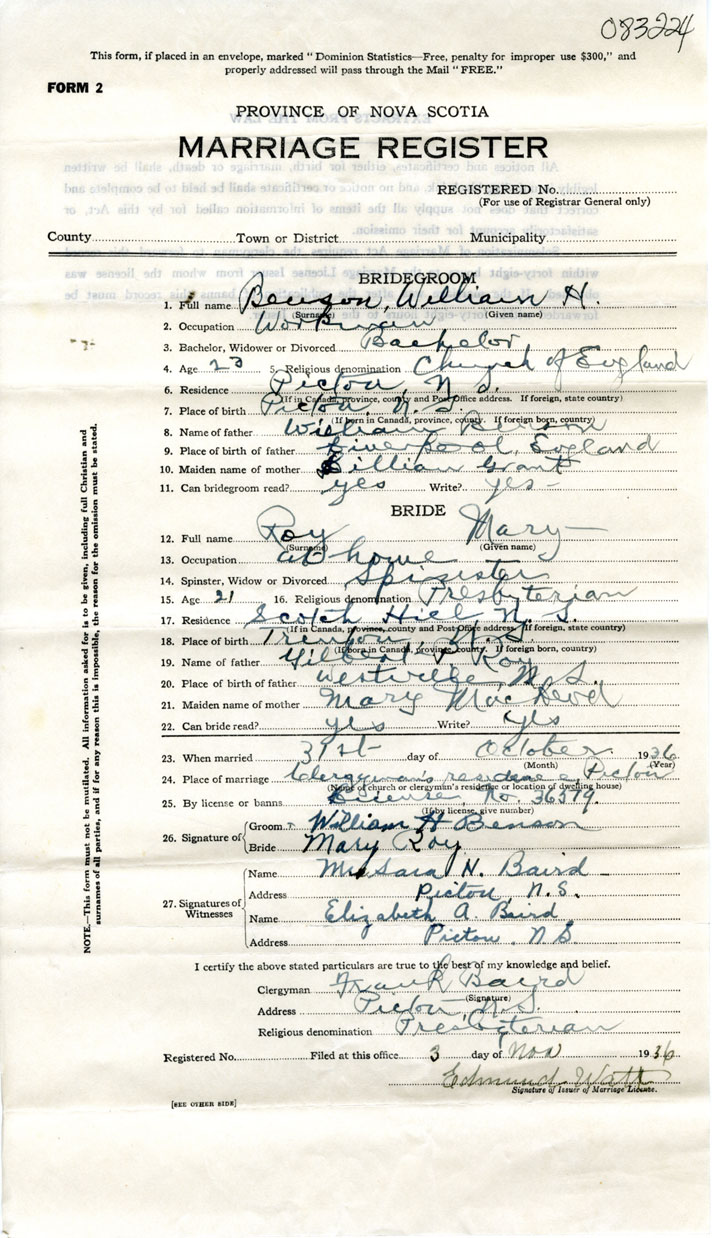 083224
This form, if placed in an envelope, marked "Dominion Statistics—Free, penalty for improper use $300," and
properly addressed will pass through the Mail "FREE."
FORM 2
PROVINCE OF NOVA SCOTIA
MARRIAGE REGISTER
REGISTERED No.
(For use of Registrar General only)
County Town or District Municipality
BRIDEGROOM
1. Full name Benson, William H.
(Surname) (Given name)
2. Occupation Workman
3. Bachelor, Widower or Divorced Bachelor
4. Age 23 5. Religious denomination Church of England
6. Residence Pictou, N.S.
(If in Canada, province, county and Post Office address. If foreign, state country)
7. Place of birth Pictou, N.S.
(If born in Canada, province, county. If foreign born, country)
8. Name of father William Benson
9. Place of birth of father Liverpool, England
10. Maiden name of mother Lillian Grant
11. Can bridegroom read? yes Write? yes -
BRIDE
12. Full name Roy Mary
(Surname) (Given name)
13. Occupation at home
14. Spinster, Widow or Divorced Spinster
15. Age 21 16. Religious denomination Presbyterian
17. Residence Scotch Hill N.S.
(If in Canada, province, county and Post Office address. If foreign, state country)
18. Place of birth Trenton, N.S.
(If born in Canada, province, county. If foreign born, country)
19. Name of father Gilbert Roy
20. Place of birth of father Westville, N.S.
21. Maiden name of mother Mary MacLeod
22. Can bride read? yes Write? yes
23. When married 31st day of October 1936
(Month) (Year)
24. Place of marriage Clergyman's residence, Pictou
(Name of church or clergyman's residence or location of dwelling house)
25. By license or banns License No. 36579.
(If by license, give number)
26. Signature of Groom William H Benson
Bride Mary Roy
27. Signatures of Witnesses Name Mrs Sara N. Baird
Address Pictou N.S.
Name Elizabeth A. Baird
Address Pictou. N.S.
I certify the above stated particulars are true to the best of my knowledge and belief.
Clergyman Frank Baird
(Signature)
Address Pictou, N.S.
Religious denomination Presbyterian
Registered No. Filed at this office 3 day of Nov 1936
Edmund
Signature of Issuer of Marriage License.
[SEE OTHER SIDE]
NOTE.—This form must not be mutilated. All information asked for is to be given, including full Christian and
surnames of all parties, and if for any reason this is impossible, the reason for the omission must be stated.